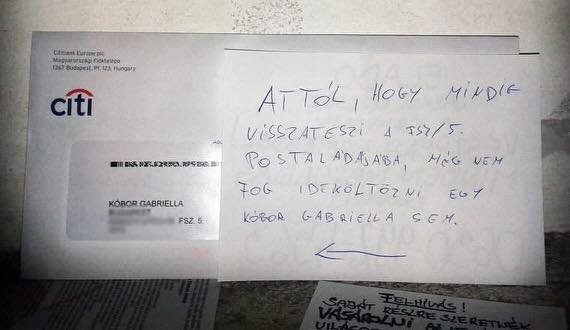 Citibank Europe plc.
Magyarországi Fióktelepe
1367 Budapest, Pf. 123, Hungary
citi
KÓBOR GABRIELLA
FSZ. 5.
ATTÓL, HOGY MINDIG
VISSZATESZI A FSZ/5.
POSTALÁDÁJÁBA, MÉG NEM
FOG IDEKÖLTÖZNI EGY
KÓBOR GABRIELLA SEM.
FELHÍVÁS!
SAJÁT RÉSZRE SZERETNÉK
VÁSÁROLNI